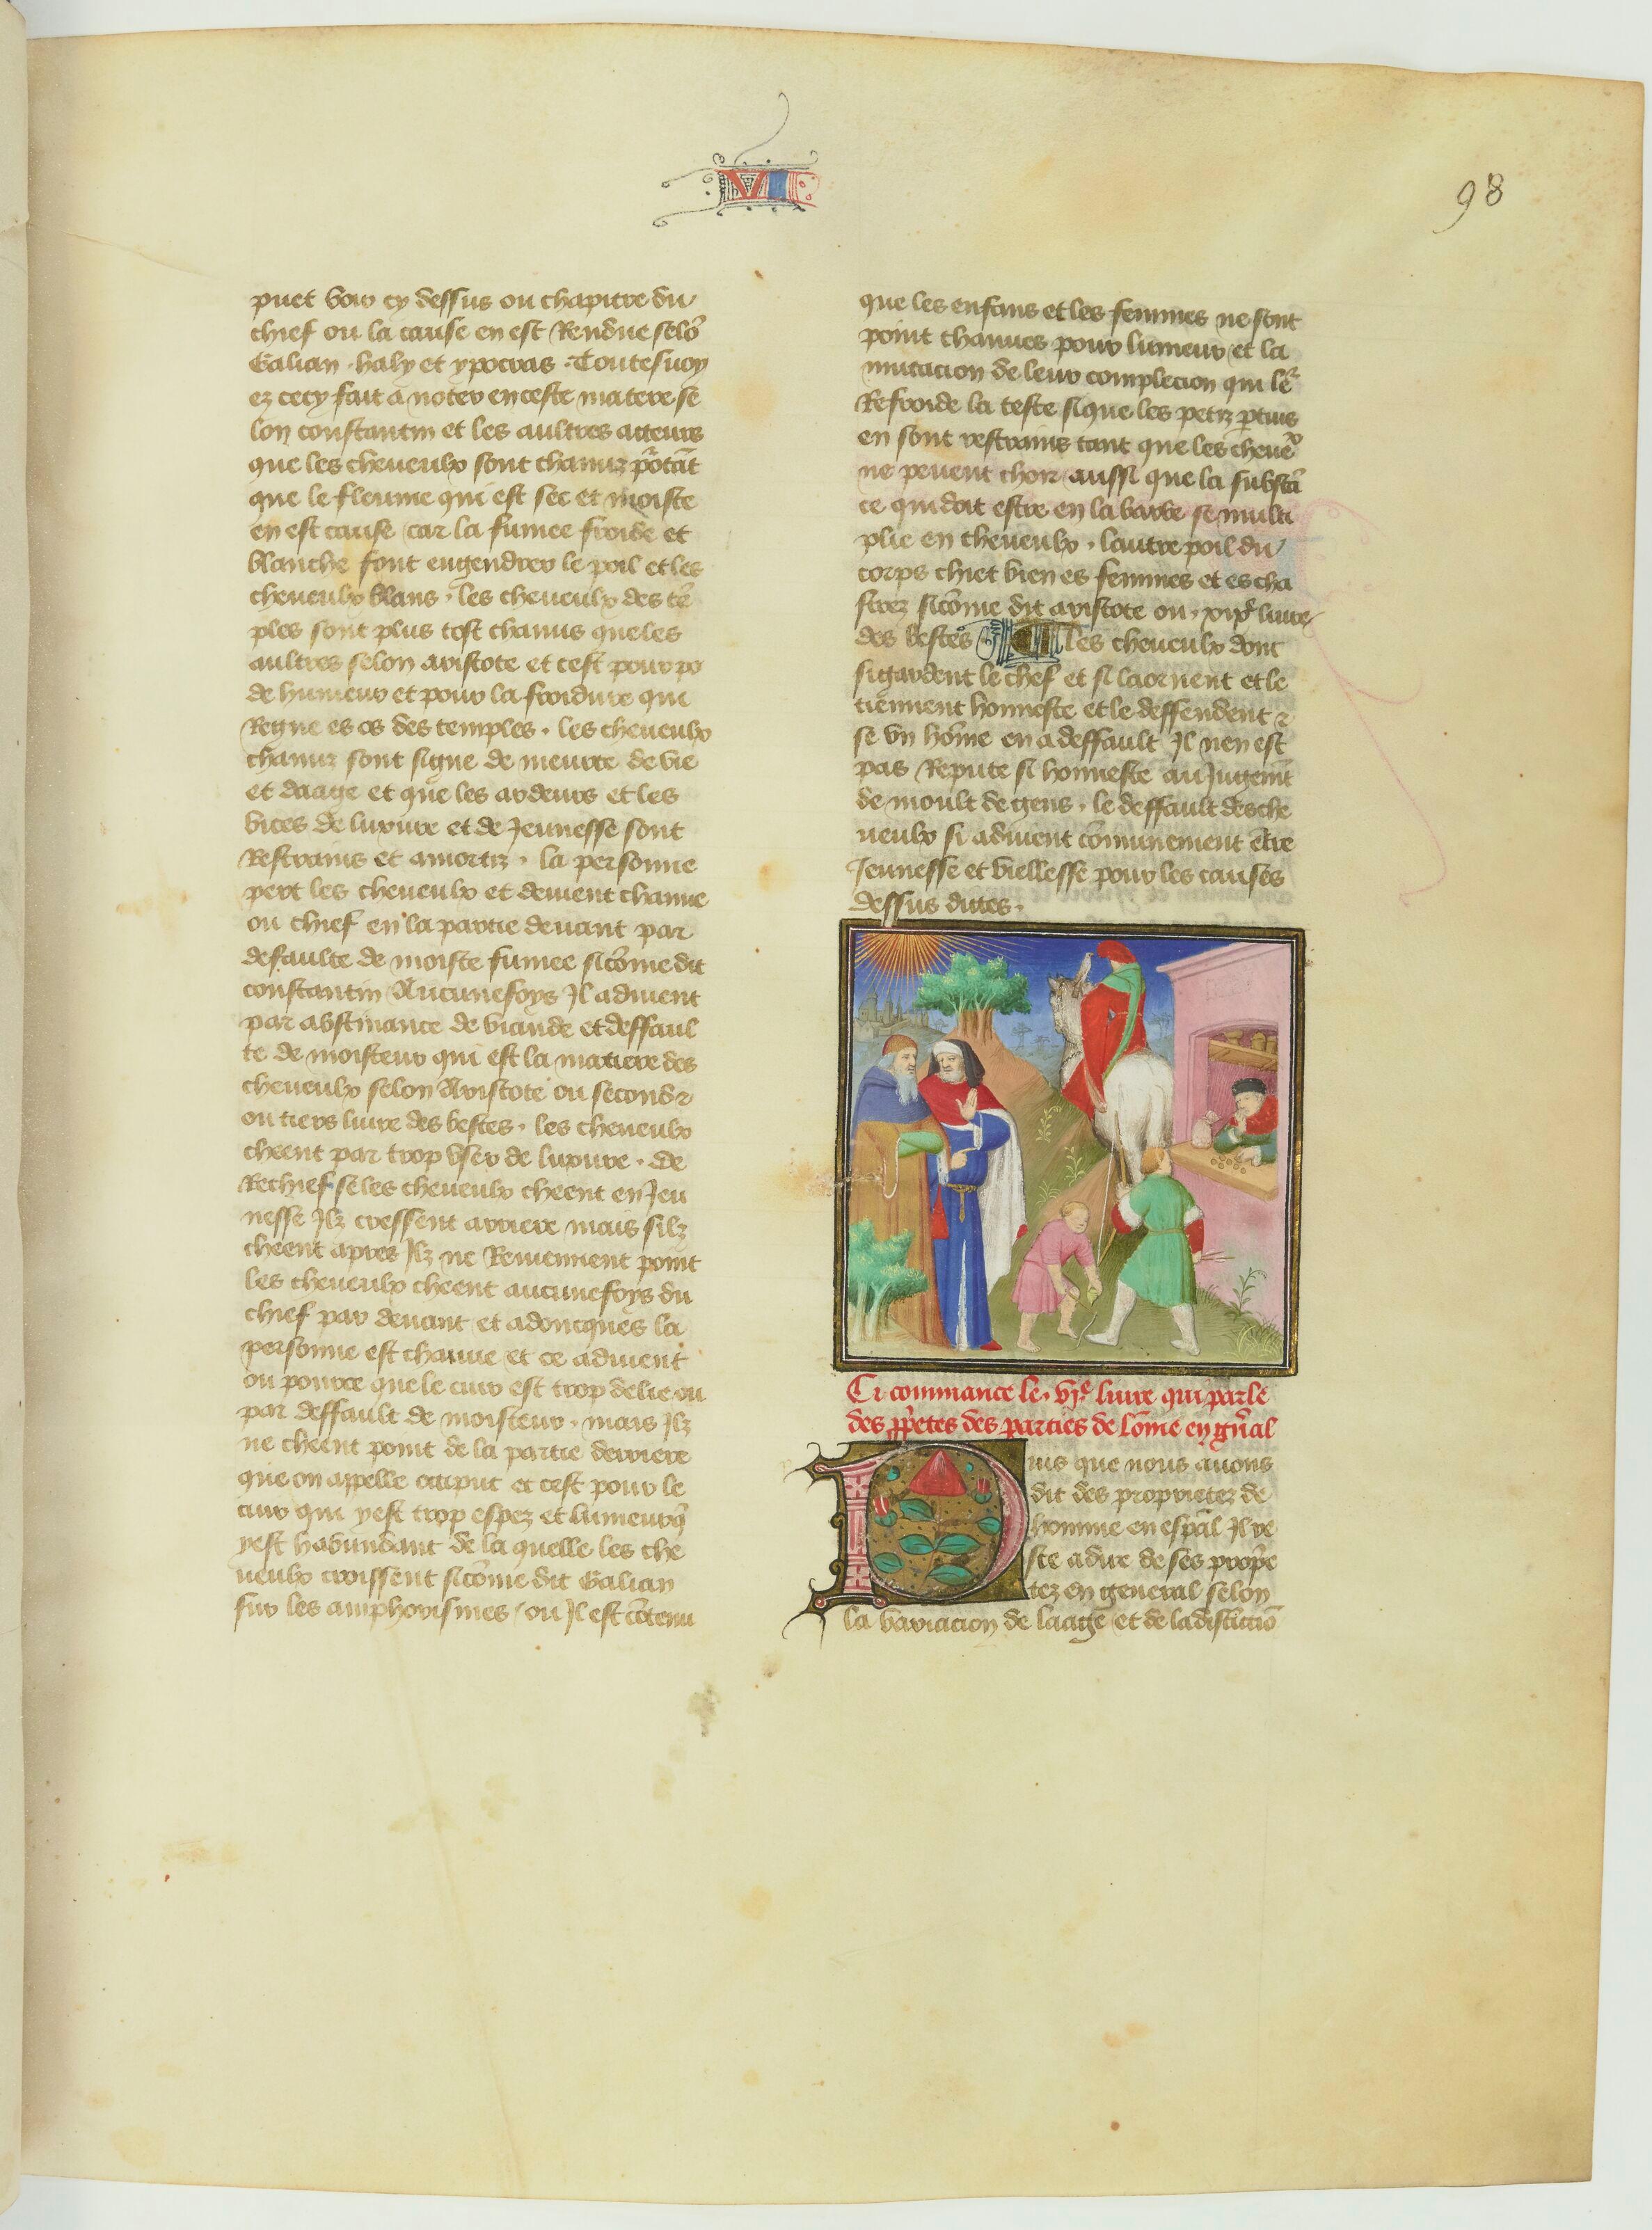 VI
98
puet voir cy dessus ou chapitre du
chief ou la cause en est Rendue selō
Galian . haly et ypocras . Toutesuoy
ez cecy fait a noter en ceste matere se
lon constantin et les aultres acteurs
que les cheueulx sont chanuz p̄ōtāt
que le fleume qui est sec et moiste
en est cause car la fumee froide et
blanche font engendrer le poil et les
cheueulx blans . les cheueulx des tē
ples sont plus tost chanus que les
aultres selon aristote et cest pour po
de humeur et pour la froidure qui
Regne es os des temples . les cheueulx
chanuz sont signe de meurte de vie
et daage et que les ardeurs et les
vices de luxure et de Jeunesse sont
Restrains et amortiz . la personne
pert les cheueulx et deuient chauue
ou chief en la partie deuant par
defaulte de moiste fumee sicōme dit
constantin Aucunefoys Il aduient
par abstinance de viande et deffaul
te de moisteur qui est la matiere des
cheueulx selon Aristote ou second
ou tiers liure des bestes . les cheueulx
cheent par trop vser de luxure . de
Rechief se les cheueulx cheent en Jeu
nesse Ilz cressent arriere mais silz
cheent apres Ilz ne Reuiennent point
les cheueulx cheent aucunefoys du
chief par deuant et adoncques la
personne est chauue et ce aduient
ou pource que le cuir est trop delie ou
par deffault de moisteur . mais Ilz
ne cheent point de la partie derriere
que on appelle occiput et cest pour le
cuir qui y est trop espez et lumeur q̄
yest habundant de la quelle les che
ueulx croissent sicōme dit Galian
sur les amphorismes ou Il est cōtenu
que les enfans et les femmes ne sont
point chauues pour lumeur et la
mutacion de leur complecion qui le᷑
Refroide la teste si que les petiz ptuis
en sont restrains tant que les cheueͯ
ne peuent choir aussi que la substā
ce qui doit estre en la barbe se multi
plie en cheueulx . lautre poil du
corps chiet bien es femmes et es cha
strez sicōme dit aristote ou . xix^e liure
des bestes les cheueulx dont
si gardent le chef et si laornent et le
tiennent honneste et le deffendent ⁊
se vn hōme en a deffault Il nen est
pas Repute si honneste au Jugemt̄
de moult de gens . le deffault des che
ueulx si aduient cōmunement ētre
Jeunesse et viellesse pour les causes
dessus dittes .
Ci commance le . vj^e liure qui parle
des pp̄etes des parties de lōme en gn̄al
Puis que nous auons
dit des proprietez de
homme en esp̄al Il re
ste a dire de ses prop̄e
tez en general selon
la variacion de laage et de la distictiō